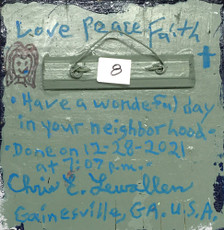 Love Peace Faith
8
• Have a wondeful day
in your neighborhood.
• Done on 12-28-2021
at 7:07 p.m.
Chris E. Lewallen
Gainesville, GA. U.S.A.